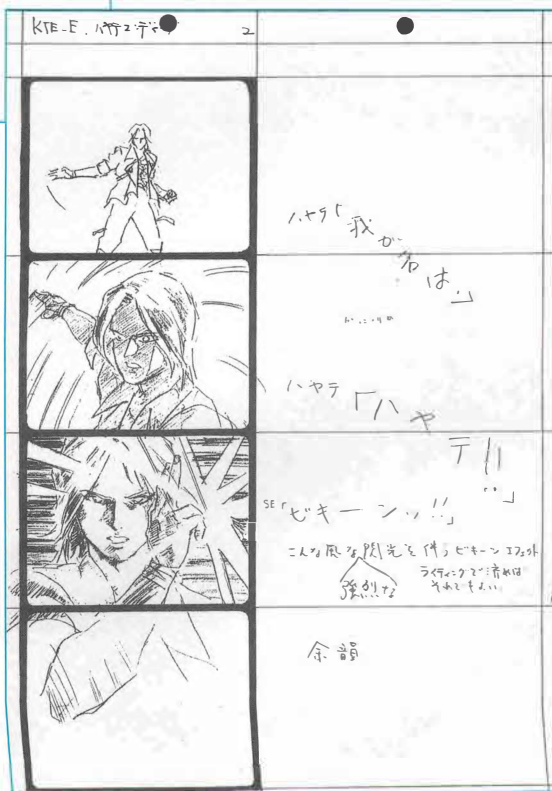 KTE-E. ハヤテエディ 2
ハヤテ「我が名は」
ハヤテ「ハヤテ!!」
SE「ビキーンッ!!」
こんな風な閃光を伴うビキーンエフェクト
強烈な
ライティングで済めば
それでもよい
余韻